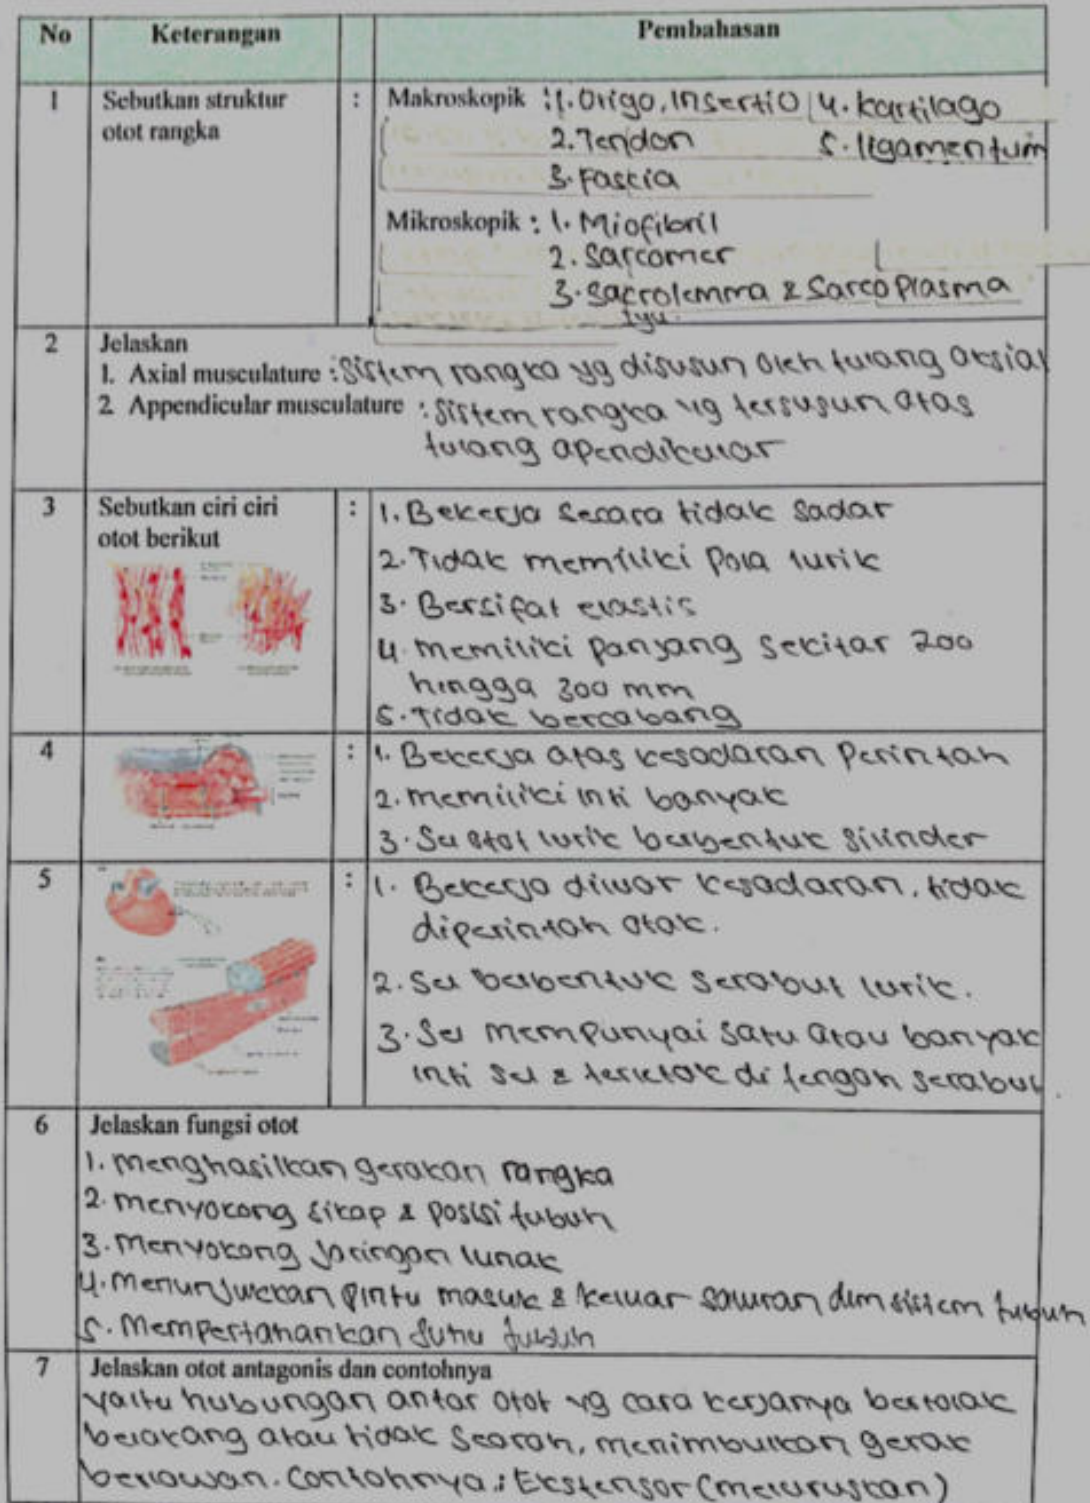 No Keterangan Pembahasan
1 Sebutkan struktur : Makroskopik : 1. Origo, Insertio 4. kartilago
otot rangka 2. Tendon 5. ligamentum
3. Fascia
Mikroskopik : 1. Miofibril
2. Sarcomer
3. Sacrolemma & Sarcoplasma
2 Jelaskan
1. Axial musculature : Sistem rangka yg disusun oleh tulang aksial
2 Appendicular musculature : Sistem rangka yg tersusun atas
tulang apendikular
3 Sebutkan ciri ciri : 1. Bekerja secara tidak sadar
otot berikut 2. Tidak memiliki pola lurik
3. Bersifat elastis
4. memiliki panjang sekitar 200
hingga 300 mm
5. Tidak bercabang
4 : 1. Bekerja atas kesadaran perintah
2. memiliki inti banyak
3. Sel otot lurik berbentuk silinder
5 : 1. Bekerja diluar kesadaran, tidak
diperintah otak.
2. Sel berbentuk serabut lurik.
3. Sel mempunyai satu atau banyak
inti sel & terletak di tengah serabut
6 Jelaskan fungsi otot
1. menghasilkan gerakan rangka
2. menyokong sikap & posisi tubuh
3. Menyokong jaringan lunak
4. Menunjukkan pintu masuk & keluar saluran dlm sistem tubuh
5. Mempertahankan suhu tubuh
7 Jelaskan otot antagonis dan contohnya
yaitu hubungan antar otot yg cara kerjanya bertolak
belakang atau tidak searah, menimbulkan gerak
berlawan. Contohnya : Ekstensor (meluruskan)